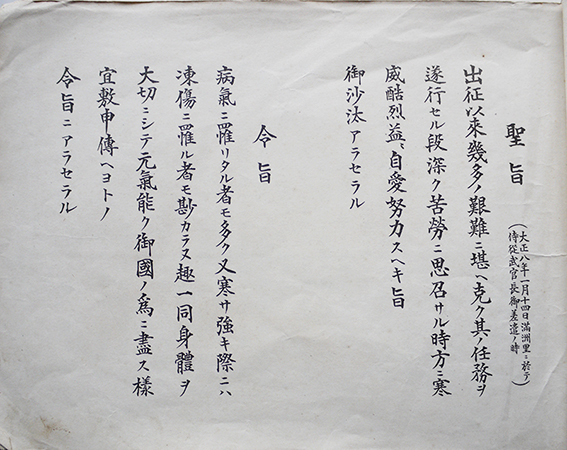 聖旨
（大正八年一月十四日滿洲里ニ於テノ
侍從武官長御差遣ノ時）
出征以来幾多ノ艱難ニ堪ヘ克ク其ノ任務ヲ
遂行セル段深ク苦勞ニ思召サル時方ニ寒
威酷烈益〻自愛努力スヘキ旨
御沙汰アラセラル
令旨
病氣ニ罹リタル者モ多ク又寒サ強キ際ニハ
凍傷ニ罹ル者モ尠カラヌ趣一同身體ヲ
大切ニシテ元氣能ク御國ノ爲ニ盡ス樣
宜敷申傳ヘヨトノ
令旨ニアラセラル